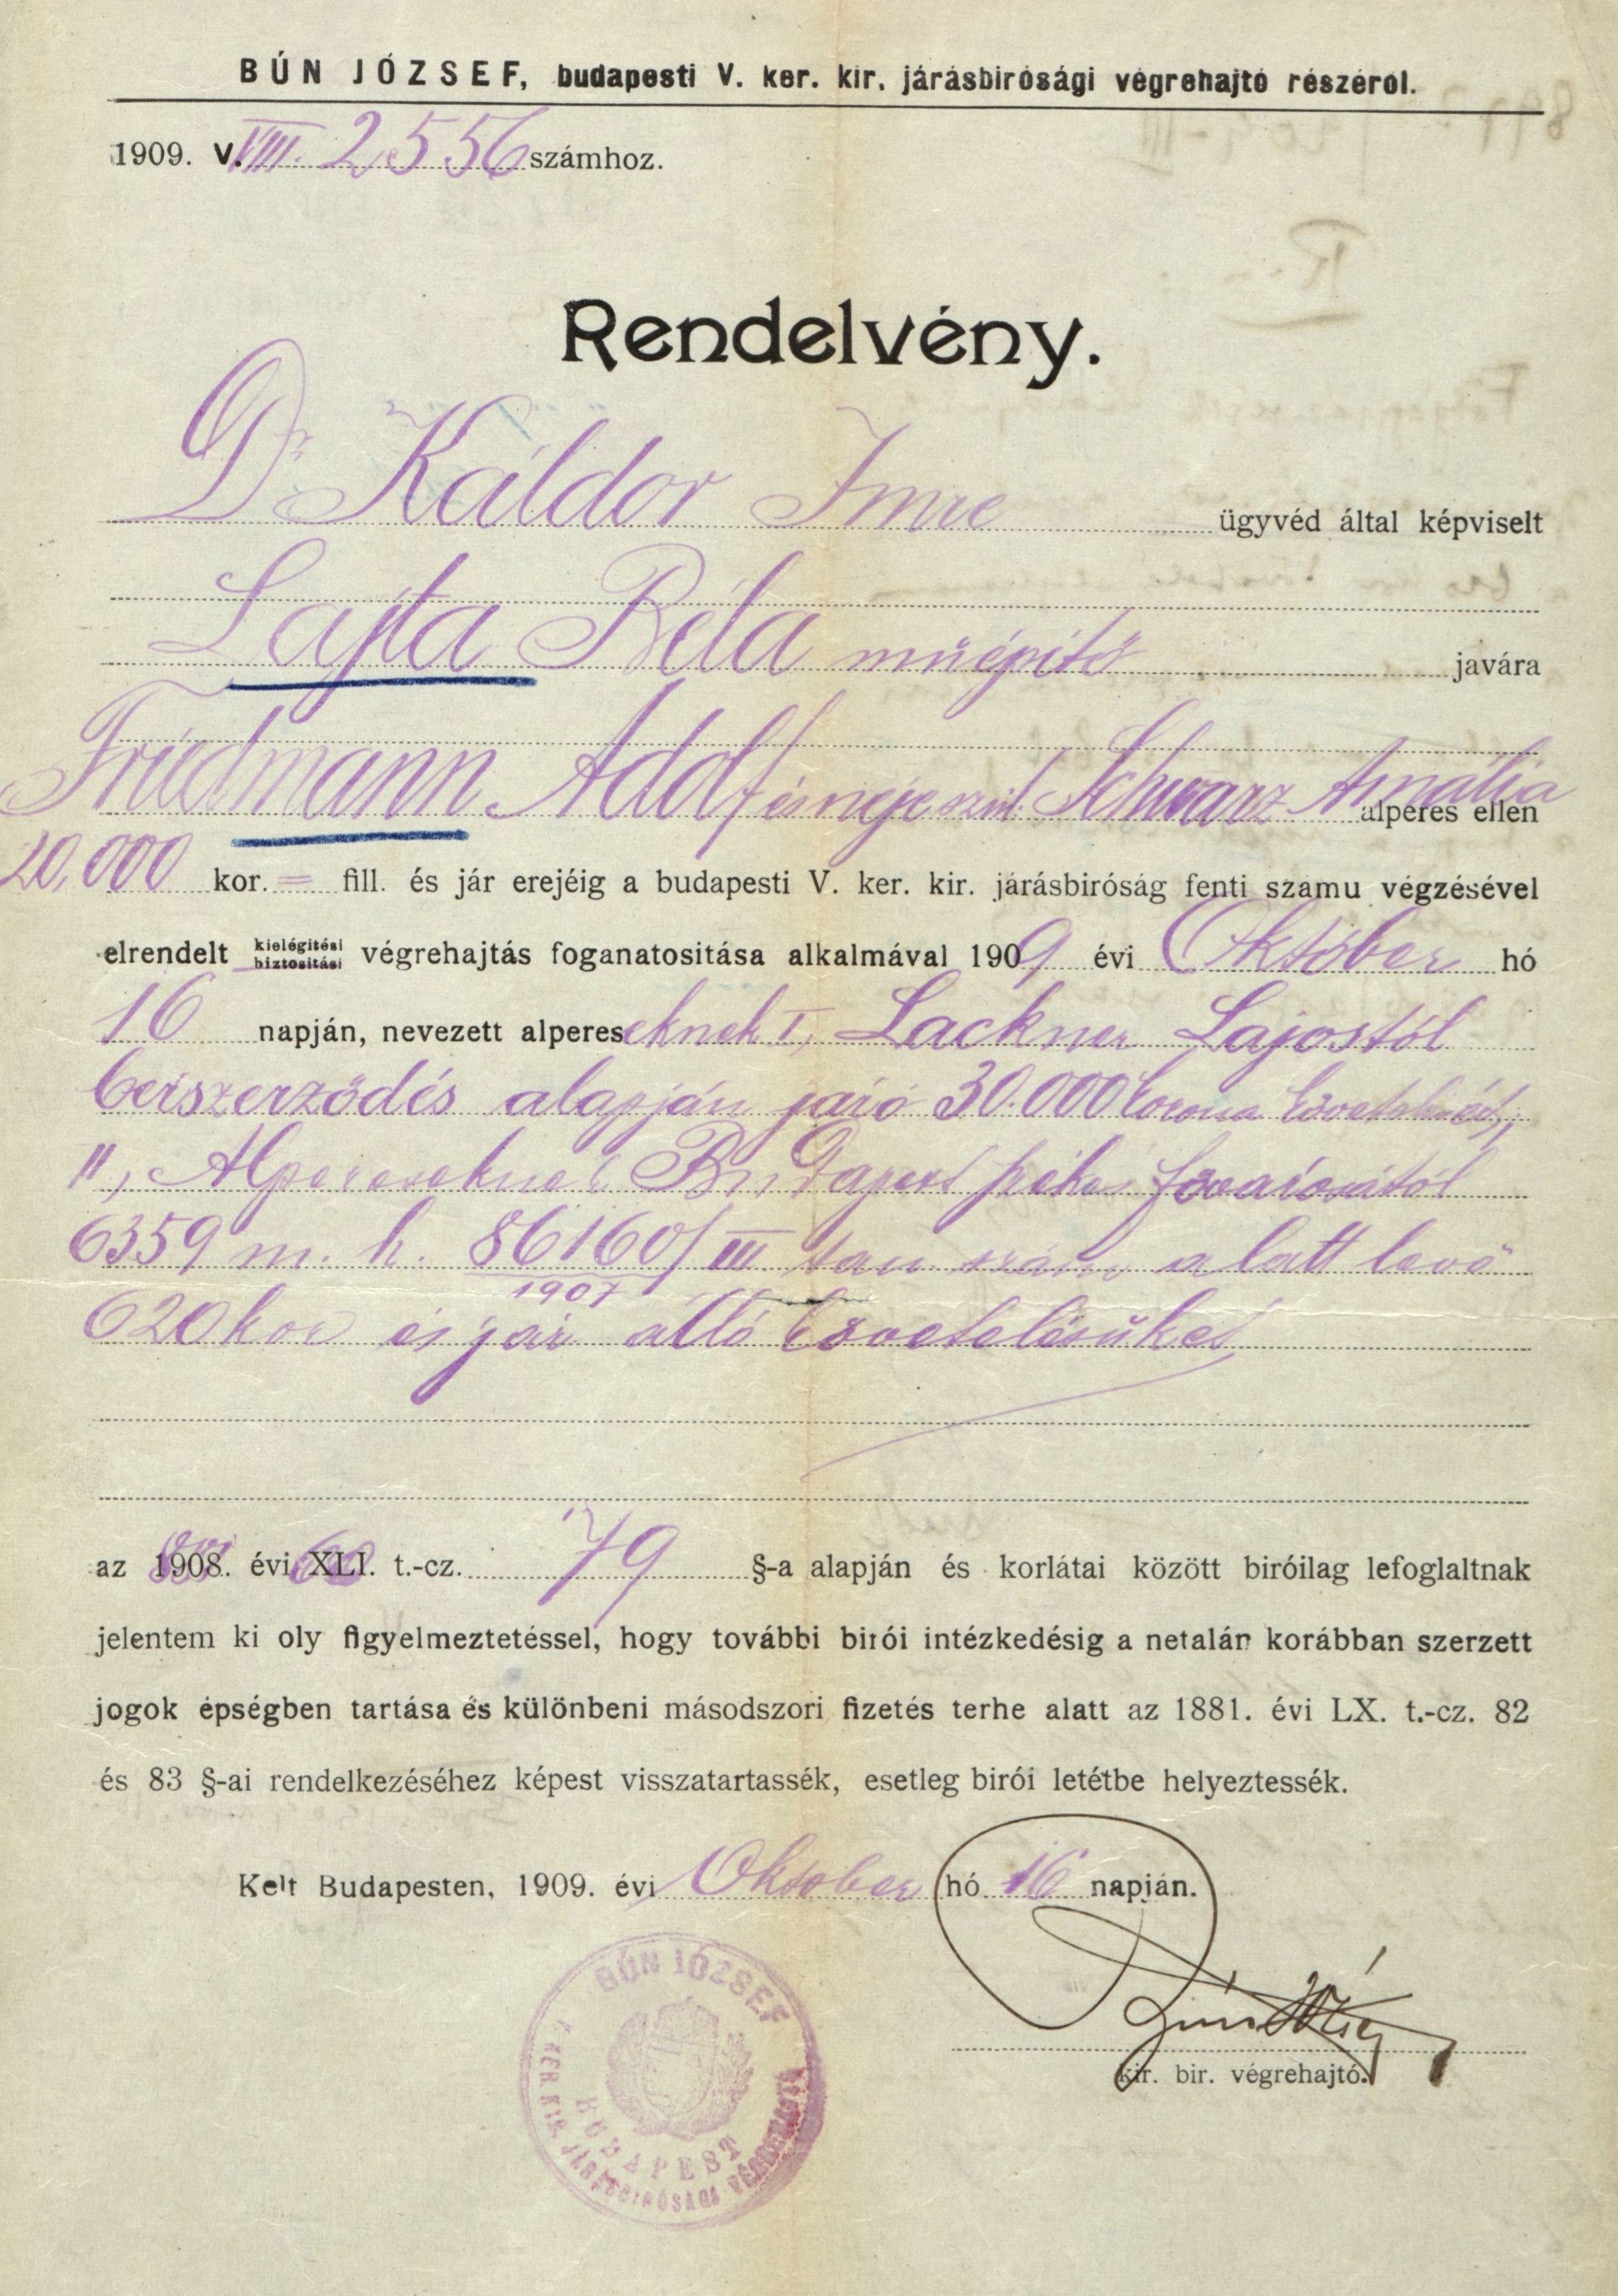 BÚN JÓZSEF, budapesti V. ker. kir. járásbirósági végrehajtó részéről.
1909. V. VIII. 2556 számhoz.
Rendelvény.
Dr Káldor Imre ügyvéd által képviselt
Lajta Béla műépítő javára
Friedmann Adolf és neje szül. Schwarz Amália alperes ellen
20,000 kor. = fill. és jár erejéig a budapesti V. ker. kir. járásbiróság fenti számu végzésével
elrendelt kielégitési biztositási végrehajtás foganatositása alkalmával 1909 évi Október hó
16 napján, nevezett alpereseknek I, Lackner Lajostól
bérszerződés alapján járó 30.000 korona követelését,
II, Alpereseknek Budapest székes fővárosától
6359 m. h. 86160/III tan. szám alatt levő
1907
620 kor és jár álló követelésüket
az 1908. évi XLI. t.-cz. 79 §-a alapján és korlátai között biróilag lefoglaltnak
jelentem ki oly figyelmeztetéssel, hogy további birói intézkedésig a netalán korábban szerzett
jogok épségben tartása és különbeni másodszori fizetés terhe alatt az 1881. évi LX. t.-cz. 82
és 83 §-ai rendelkezéséhez képest visszatartassék, esetleg birói letétbe helyeztessék.
Kelt Budapesten, 1909. évi Oktober hó 16 napján.
Bún József
kir. bir. végrehajtó.
BÚN JÓZSEF
V. KER. KIR. JÁRÁSBIRÓSÁGI VÉGREHAJTÓ
BUDAPEST